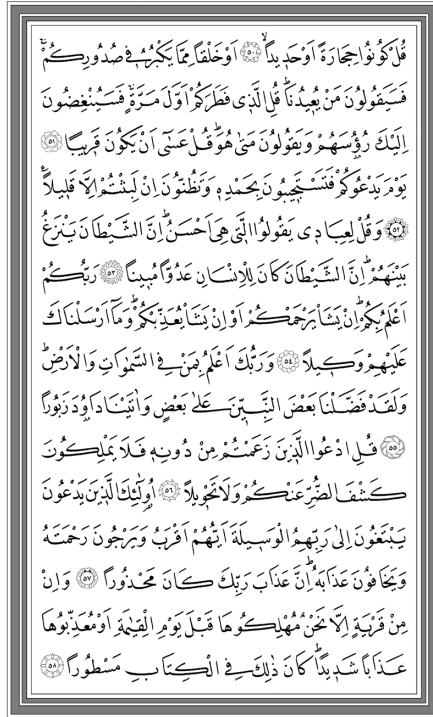 قُلْ كُونُوا حِجَارَةً اَوْ حَد۪يدًاۙ ﴿٥٠﴾ اَوْ خَلْقًا مِمَّا يَكْبُرُ ف۪ي صُدُورِكُمْۚ
فَسَيَقُولُونَ مَنْ يُع۪يدُنَاۜ قُلِ الَّذ۪ي فَطَرَكُمْ اَوَّلَ مَرَّةٍۚ فَسَيُنْغِضُونَ
اِلَيْكَ رُؤُ۫سَهُمْ وَيَقُولُونَ مَتٰى هُوَۜ قُلْ عَسٰٓى اَنْ يَكُونَ قَر۪يبًا ﴿٥١﴾
يَوْمَ يَدْعُوكُمْ فَتَسْتَج۪يبُونَ بِحَمْدِه۪ وَتَظُنُّونَ اِنْ لَبِثْتُمْ اِلَّا قَل۪يلًا۟
﴿٥٢﴾ وَقُلْ لِعِبَاد۪ي يَقُولُوا الَّت۪ي هِيَ اَحْسَنُۜ اِنَّ الشَّيْطَانَ يَنْزَغُ
بَيْنَهُمْۜ اِنَّ الشَّيْطَانَ كَانَ لِلْاِنْسَانِ عَدُوًّا مُب۪ينًا ﴿٥٣﴾ رَبُّكُمْ
اَعْلَمُ بِكُمْۜ اِنْ يَشَأْ يَرْحَمْكُمْ اَوْ اِنْ يَشَأْ يُعَذِّبْكُمْۜ وَمَٓا اَرْسَلْنَاكَ
عَلَيْهِمْ وَك۪يلًا ﴿٥٤﴾ وَرَبُّكَ اَعْلَمُ بِمَنْ فِي السَّمٰوَاتِ وَالْاَرْضِۜ
وَلَقَدْ فَضَّلْنَا بَعْضَ النَّبِيّ۪نَ عَلٰى بَعْضٍ وَاٰتَيْنَا دَاوُ۫دَ زَبُورًا
﴿٥٥﴾ قُلِ ادْعُوا الَّذ۪ينَ زَعَمْتُمْ مِنْ دُونِه۪ فَلَا يَمْلِكُونَ
كَشْفَ الضُّرِّ عَنْكُمْ وَلَا تَحْو۪يلًا ﴿٥٦﴾ اُو۬لٰٓئِكَ الَّذ۪ينَ يَدْعُونَ
يَبْتَغُونَ اِلٰى رَبِّهِمُ الْوَس۪يلَةَ اَيُّهُمْ اَقْرَبُ وَيَرْجُونَ رَحْمَتَهُ
وَيَخَافُونَ عَذَابَهُۜ اِنَّ عَذَابَ رَبِّكَ كَانَ مَحْذُورًا ﴿٥٧﴾ وَاِنْ
مِنْ قَرْيَةٍ اِلَّا نَحْنُ مُهْلِكُوهَا قَبْلَ يَوْمِ الْقِيٰمَةِ اَوْ مُعَذِّبُوهَا
عَذَابًا شَد۪يدًاۜ كَانَ ذٰلِكَ فِي الْكِتَابِ مَسْطُورًا ﴿٥٨﴾